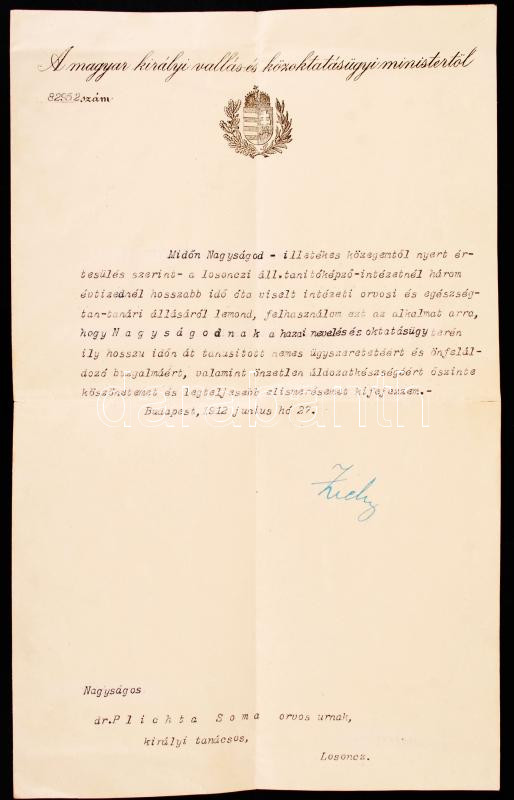 A magyar királyi vallás és közoktatásügyi ministertől
82952 szám
Midőn Nagyságod - illetékes közegemtől nyert ér-
tesülés szerint- a losonczi áll.tanitóképző-intézetnél három
évtizednél hosszabb idő óta viselt intézeti orvosi és egészség-
tan-tanári állásáról lemond, felhasználom ezt az alkalmat arra,
hogy Nagyságodnak a hazai nevelés és oktatásügy terén
ily hosszu időn át tanusitott nemes ügyszeretetéért és önfelál-
dozó buzgalmáért, valamint önzetlen áldozatkészségéért őszinte
köszönetemet és legteljesebb elismerésemet kifejezzem.-
Budapest, 1912 junius hó 27.
darabanth
Zichy
Nagyságos
dr.Plichta Soma orvos urnak,
királyi tanácsos,
Losoncz.